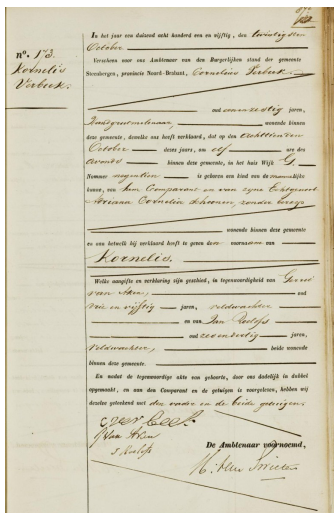 n°. 173.
Kornelis
Verbeek.
In het jaar een duizend acht honderd een en vijftig, den twintigsten
October
Verscheen voor ons Ambtenaar van den Burgerlijken stand der gemeente
Steenbergen, provincie Noord-Braband, Cornelius Verbeek
oud jaren,
wonende binnen
deze gemeente, dewelke ons heeft verklaard, dat op den achttienden
October dezes jaars, om elf ure des
avonds binnen deze gemeente, in het huis Wijk G
Nommer negentien is geboren een kind van de mannelijke
kunne, van hem Comparant en van zijne Echtgenoot
Adriana Cornelia zonder beroep
wonende binnen deze gemeente
en aan hetwelk hij verklaard heeft te geven den voornaam van
Kornelis.
Welke aangifte en verklaring zijn geschied, in tegenwoordigheid van Gerrit
van Aken, oud
drie en vijftig jaren, veldwachter
en van Jan Roelofs
oud jaren,
veldwachter, beide wonende
binnen deze gemeente.
En nadat de tegenwoordige akte van geboorte, door ons dadelijk in dubbel
opgemaakt, en aan den Comparant en de getuigen is voorgelezen, hebben wij
dezelve geteekend met den vader en de beide getuigen.
C Verbeek
G Van Aken
J. Roelofs
De Ambtenaar voornoemd,